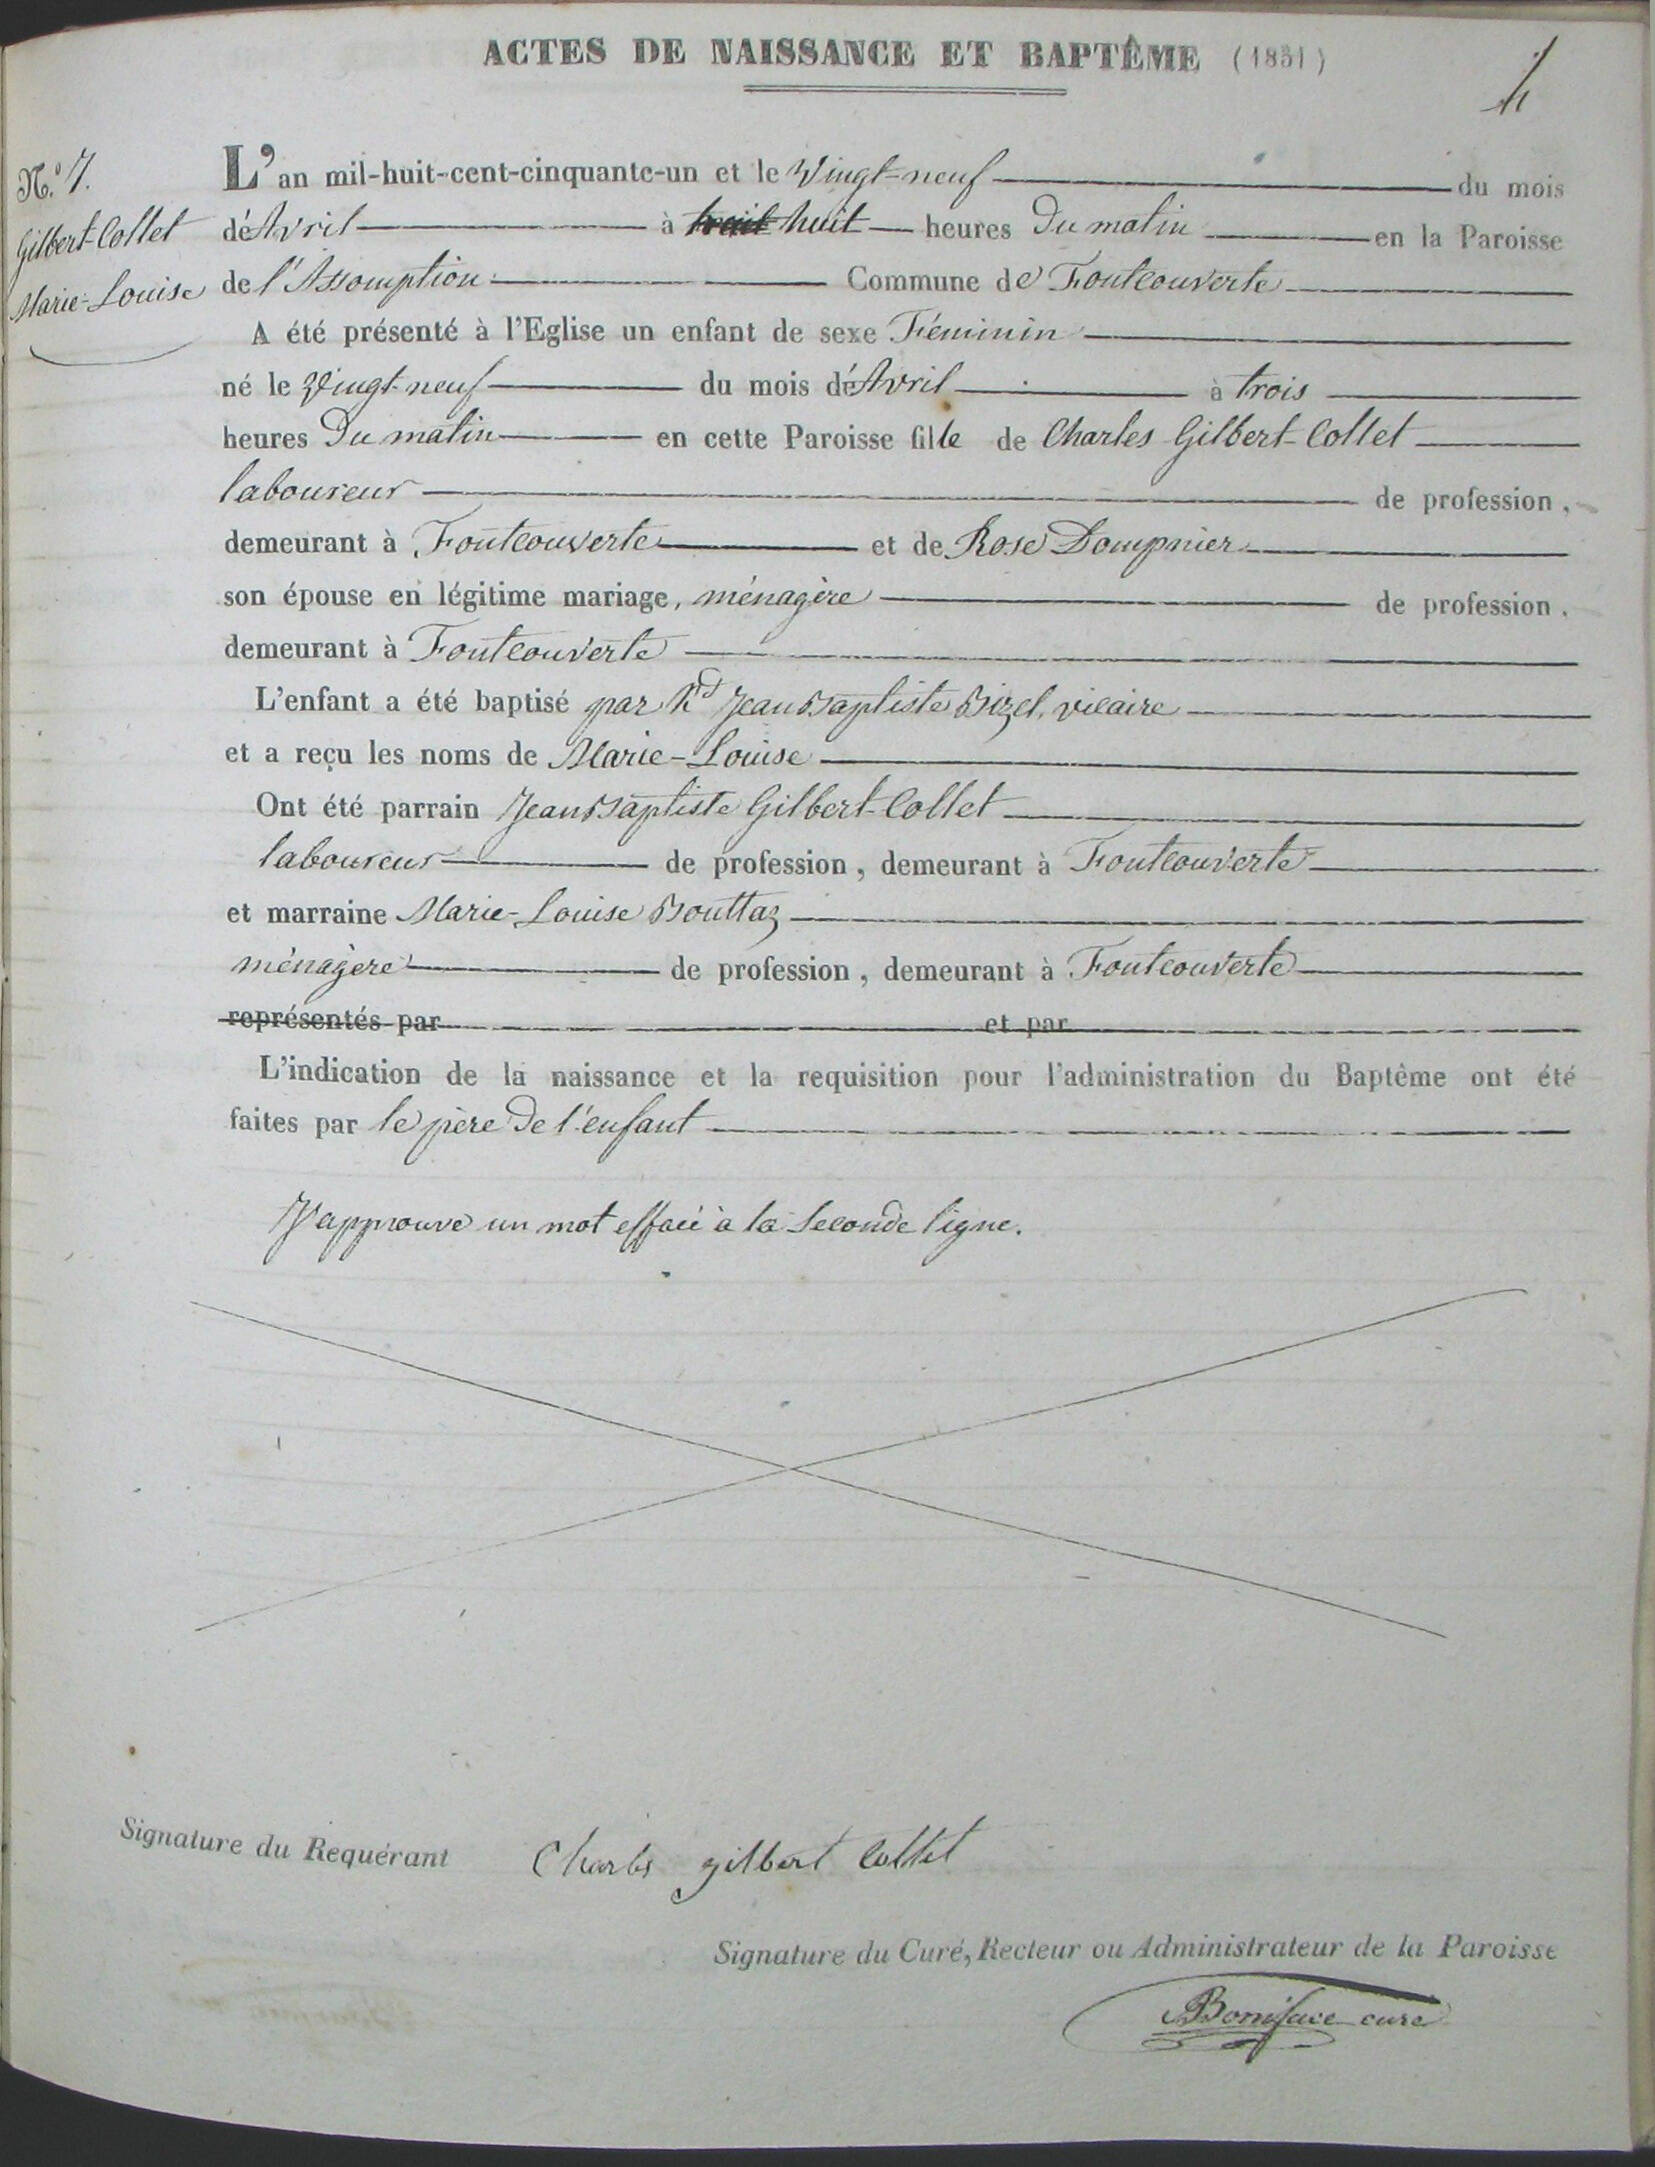 ACTES DE NAISSANCE ET BAPTÊME (1851)
4
N.º 7.
Gilbert-Collet
Marie-Louise
L'an mil-huit-cent-cinquante-un et le Vingt-neuf du mois
d'Avril à huit heures du matin en la Paroisse
de l'Assomption Commune de Fontcouverte
A été présenté à l'Eglise un enfant de sexe Féminin
né le Vingt-neuf du mois d'Avril à trois
heures du matin en cette Paroisse fille de Charles Gilbert-Collet
laboureur de profession,
demeurant à Fontcouverte et de Rose Dompnier
son épouse en légitime mariage, ménagère de profession.
demeurant à Fontcouverte
L'enfant a été baptisé par Rd Jean Baptiste Bizel, vicaire
et a reçu les noms de Marie-Louise
Ont été parrain Jean Baptiste Gilbert-Collet
laboureur de profession, demeurant à Fontcouverte
et marraine Marie-Louise Bouttaz
ménagère de profession, demeurant à Fontcouverte
représentés par et par
L'indication de la naissance et la requisition pour l'administration du Baptême ont été
faites par le père de l'enfant
J'approuve un mot effacé à la seconde ligne.
Signature du Requérant Charles gilbert collet
Signature du Curé, Recteur ou Administrateur de la Paroisse
Boniface curé